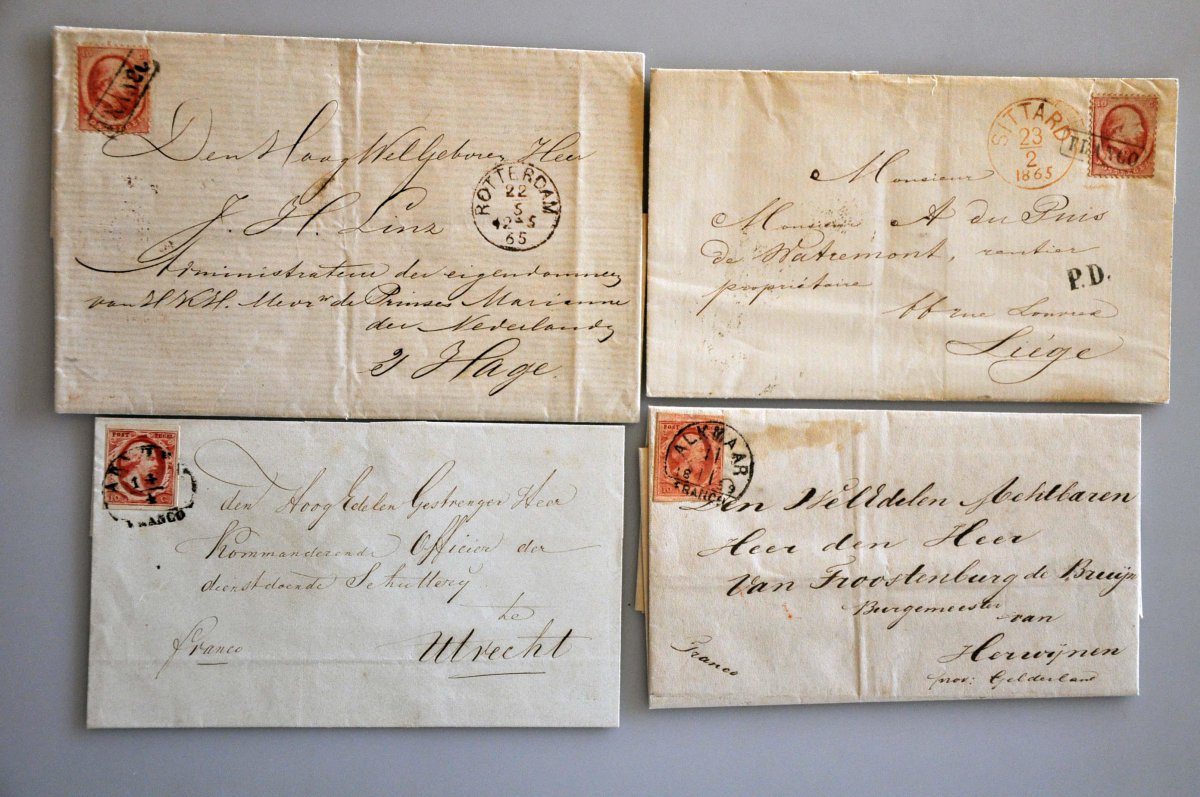 Den Hoog Welgeboren Heer
J. H. Linz
Administrateur der eigendommen
van H.K.H. Mevr^w de Prinses Marianne
der Nederlanden
's Hage.
ROTTERDAM
22
5
12-5
65
SITTARD
23
2
1865
FRANCO
10
Monsieur
Monsieur A du Puis
de Watremont, rentier
propriétaire
P.D.
rue
Liége
POST
FRANCO
den HoogEdelen Gestrenger Heer
Kommanderende Officier der
dienstdoende Schuttery
te
Utrecht
franco
ALKMAAR
FRANCO
Den WelEdelen Achtbaren
Heer den Heer
Van Froostenburg de Bruijn
Burgemeester
van
Herwijnen
prov: Gelderland
Franco